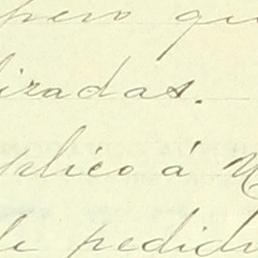 pero qu
lizadas.
plico á
de pedid